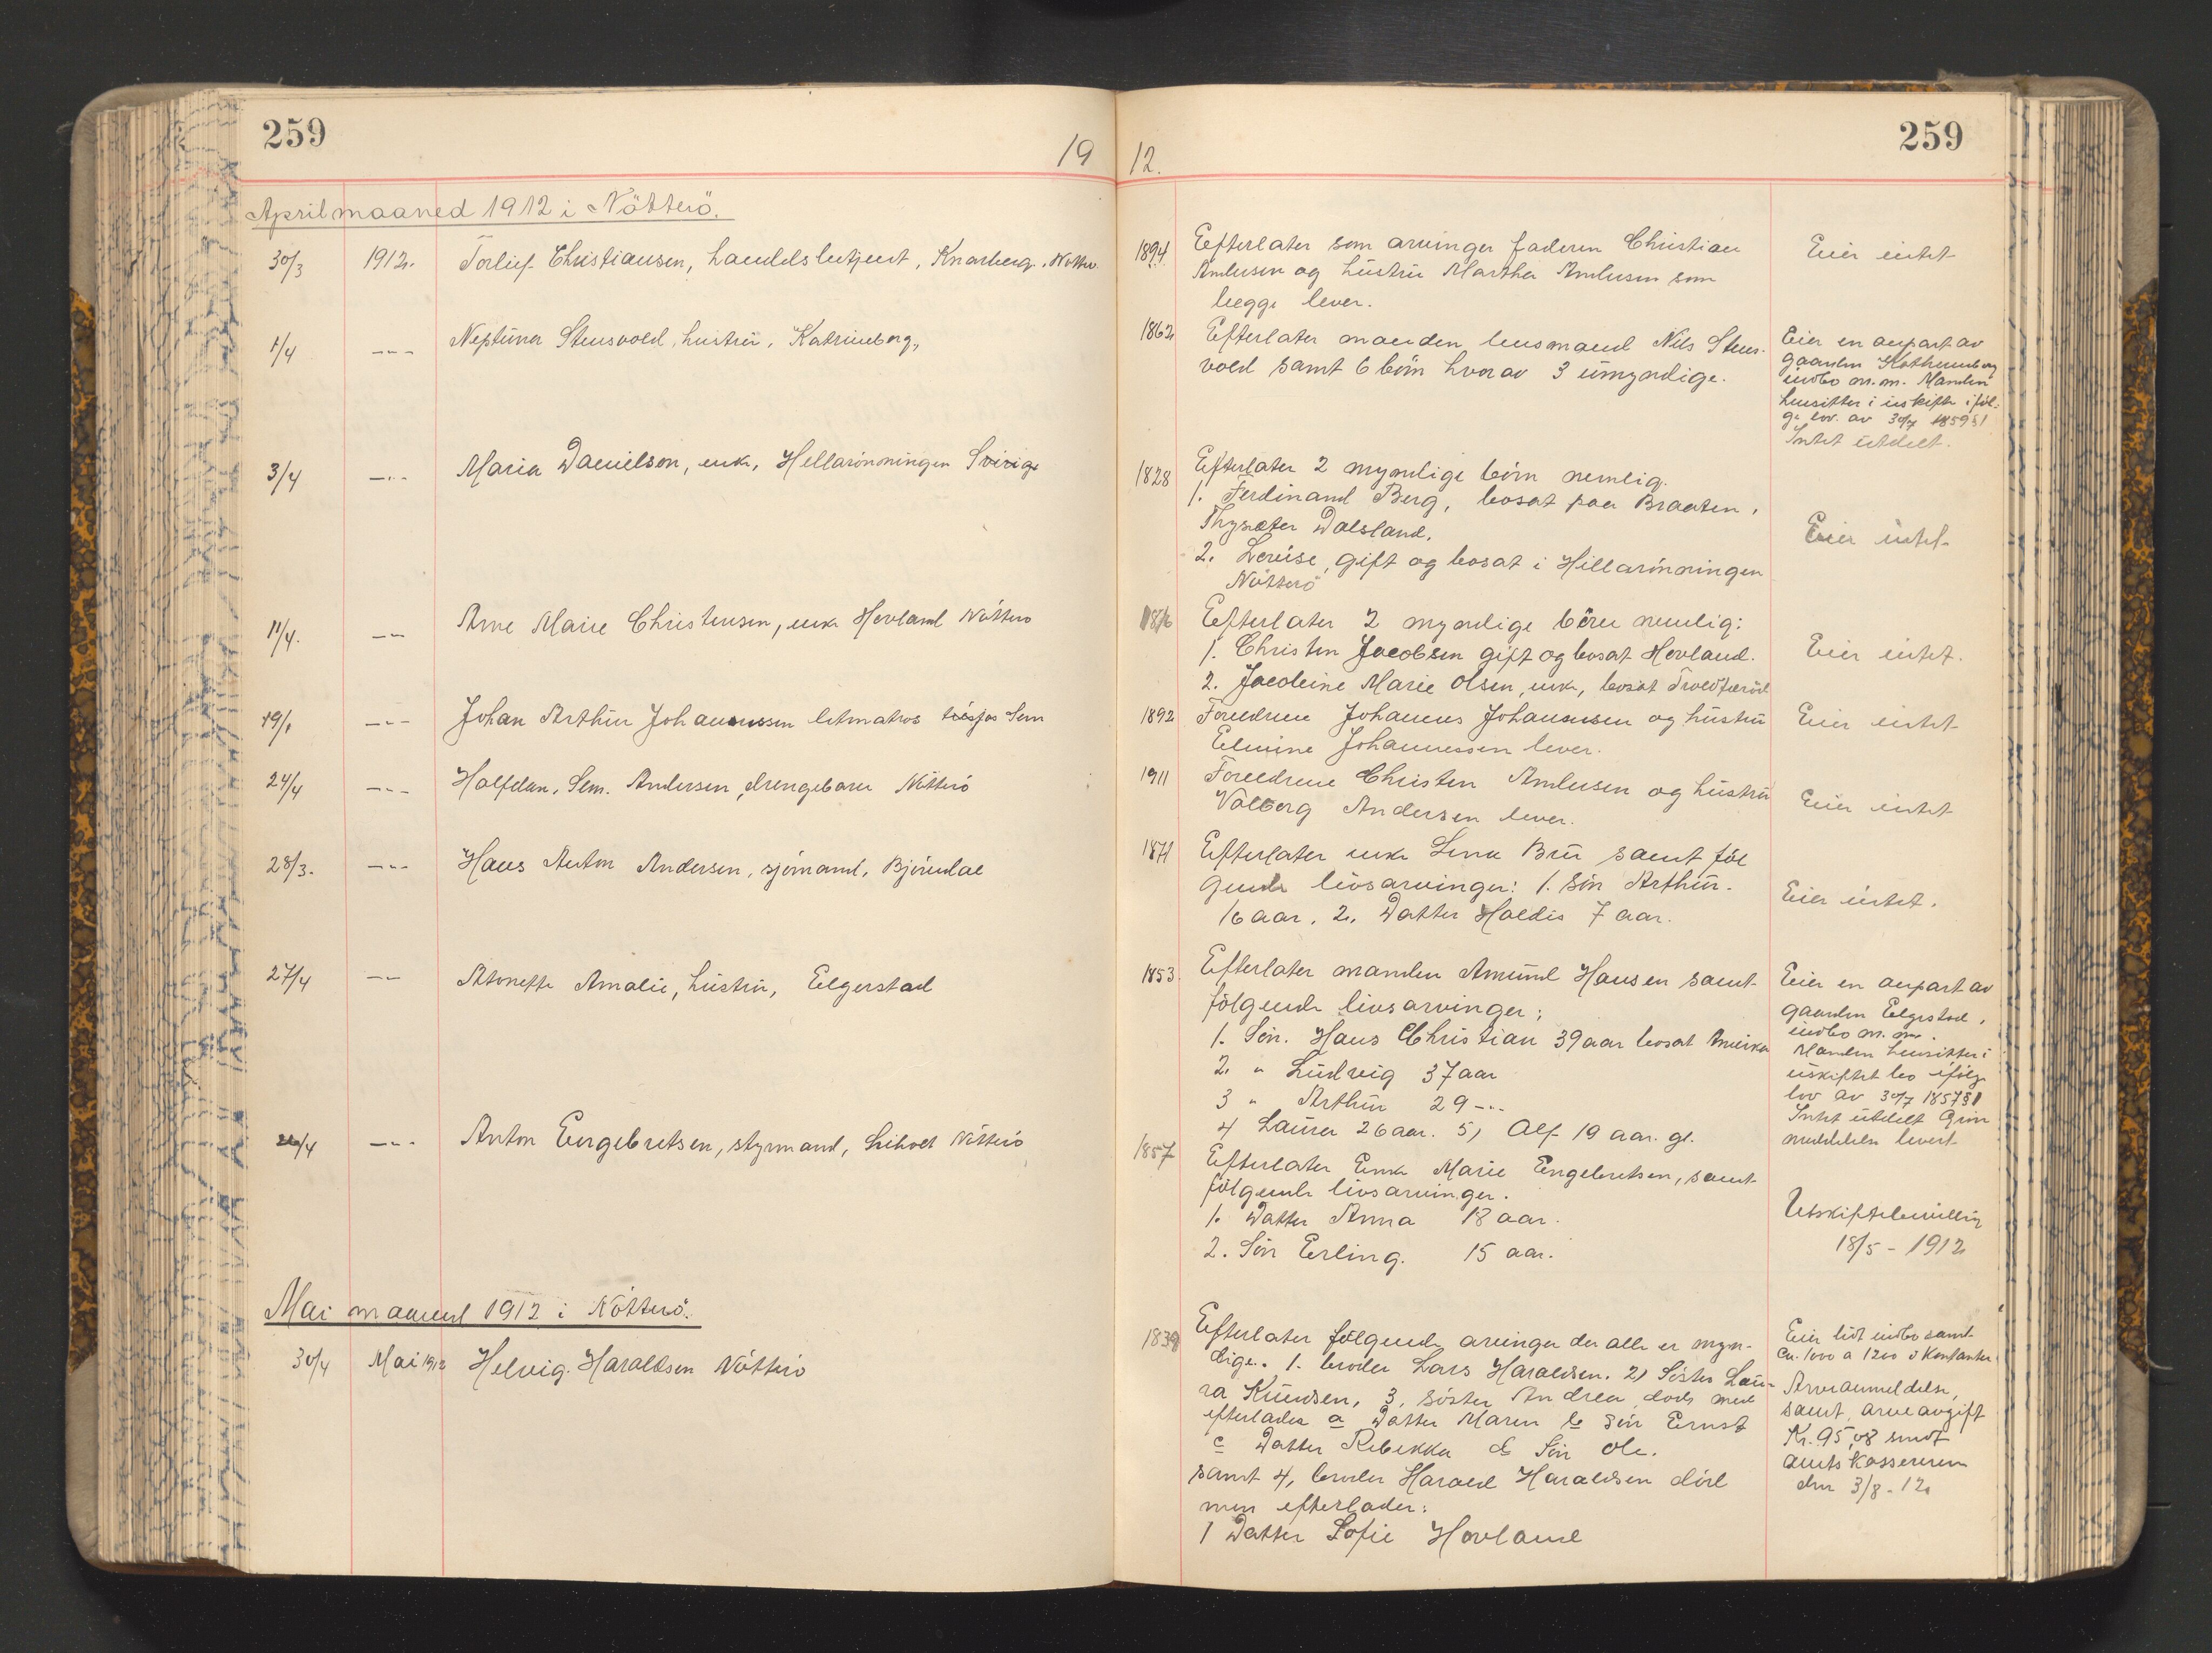 259
19
12.
259
Aprilmaaned 1912 i Nötterö.
30/3 1912. Torleif Christiansen, handelsbetjent, Knarberg. Nötterö
1894 Efterlater som arvinger faderen Christian
Andersen og hustru Martha Andersen som
begge lever.
Eier intet
1/4 -"- Neptuna Stensvold, hustru, Katrineborg,
1862 Efterlater manden lensmand Nils Stens-
vold samt 6 börn hvorav 3 umyndige.
Eier en anpart av
gaarden Kathrineborg
indbo m. m. Manden
hensitter i uskifte iföl-
ge lov. av 30/7 1859 § 1
Intet utdelt.
3/4 -"- Maria Danielson, enke, Hellarönningen Sverige
1828 Efterlater 2 myndige börn nemlig.
1. Ferdinand Berg, bosat paa Braaten,
Thysæter Dalsland.
2. Lovise, gift og bosat i Hillarönningen
Nötterö
Eier intet
11/4. -"- Anne Marie Christensen, enke Hovland Nötterö
1816 Efterlater 2 myndige börn nemlig:
1. Christen Jacobsen gift og bosat Hovland.
2. Jacobine Marie Olsen, enke, bosat
Eier intet.
19/1 -"- Johan Arthur Johannessen letmatros Sem
1892 Foreldrene Johannes Johannessen og hustru
Elmine Johannessen lever.
Eier intet
24/4 -"- Halfdan, Sem. Andersen, drengebarn Nötterö
1911 Foreldrene Christen Andersen og hustru
Valborg Andersen lever.
Eier intet
28/3. -"- Hans Anton Andersen, sjömand, Björndal
1871 Efterlater enke Lina Bru samt föl
gende livsarvinger: 1. sön Arthur.
16 aar. 2. Datter Haldis 7 aar.
Eier intet.
27/4 -"- Antonette Amalie, hustru, Elgerstad
1853. Efterlater manden Amund Hansen samt
fölgende livsarvinger:
1. Sön. Hans Christian 39 aar bosat Amerika
2. " Ludvig 37 aar
3 " Arthur 29 -"-
4 Laura 26 aar. 5, Alf 19 aar. gl.
Eier en anpart av
gaarden Elgestad,
indbo m. m.
Manden hensitter i
uskiftet bo ifölge
lov av 30/7 1857 § 1
Intet utdelt Grin
meddelelse levert
26/4 -"- Anton Engebretsen, styrmand, Nötterö
1857 Efterlater Enke Marie Engebretsen, samt
fölgende livsarvinger.
1. Datter Anna 18 aar.
2. Sön Erling. 15 aar.
Uskiftebevilling
18/5 - 1912
Mai maaned 1912 i Nötterö.
30/4 Mai 1912 Helvig. Haraldsen Nötterö
1839 Efterlater fölgende arvinger der alle er myn-
dige. 1. broder Lars Haraldsen. 2, Söster Lau-
ra Knudsen, 3, söster Andrea död med
efterlader a Datter Maren b Sön Ernst
c Datter Rebekka d Sön Ole.
samt 4, broder Harald Haraldsen död
men efterlader:
1 Datter Sofie Hovland
Eier lidt indbo samt
Ca. 1000 a 1200 i Kontanter.
Arveanmeldelse,
samt arveavgift
Kr. 95,08 sendt
amtskassereren
den 3/8 - 12